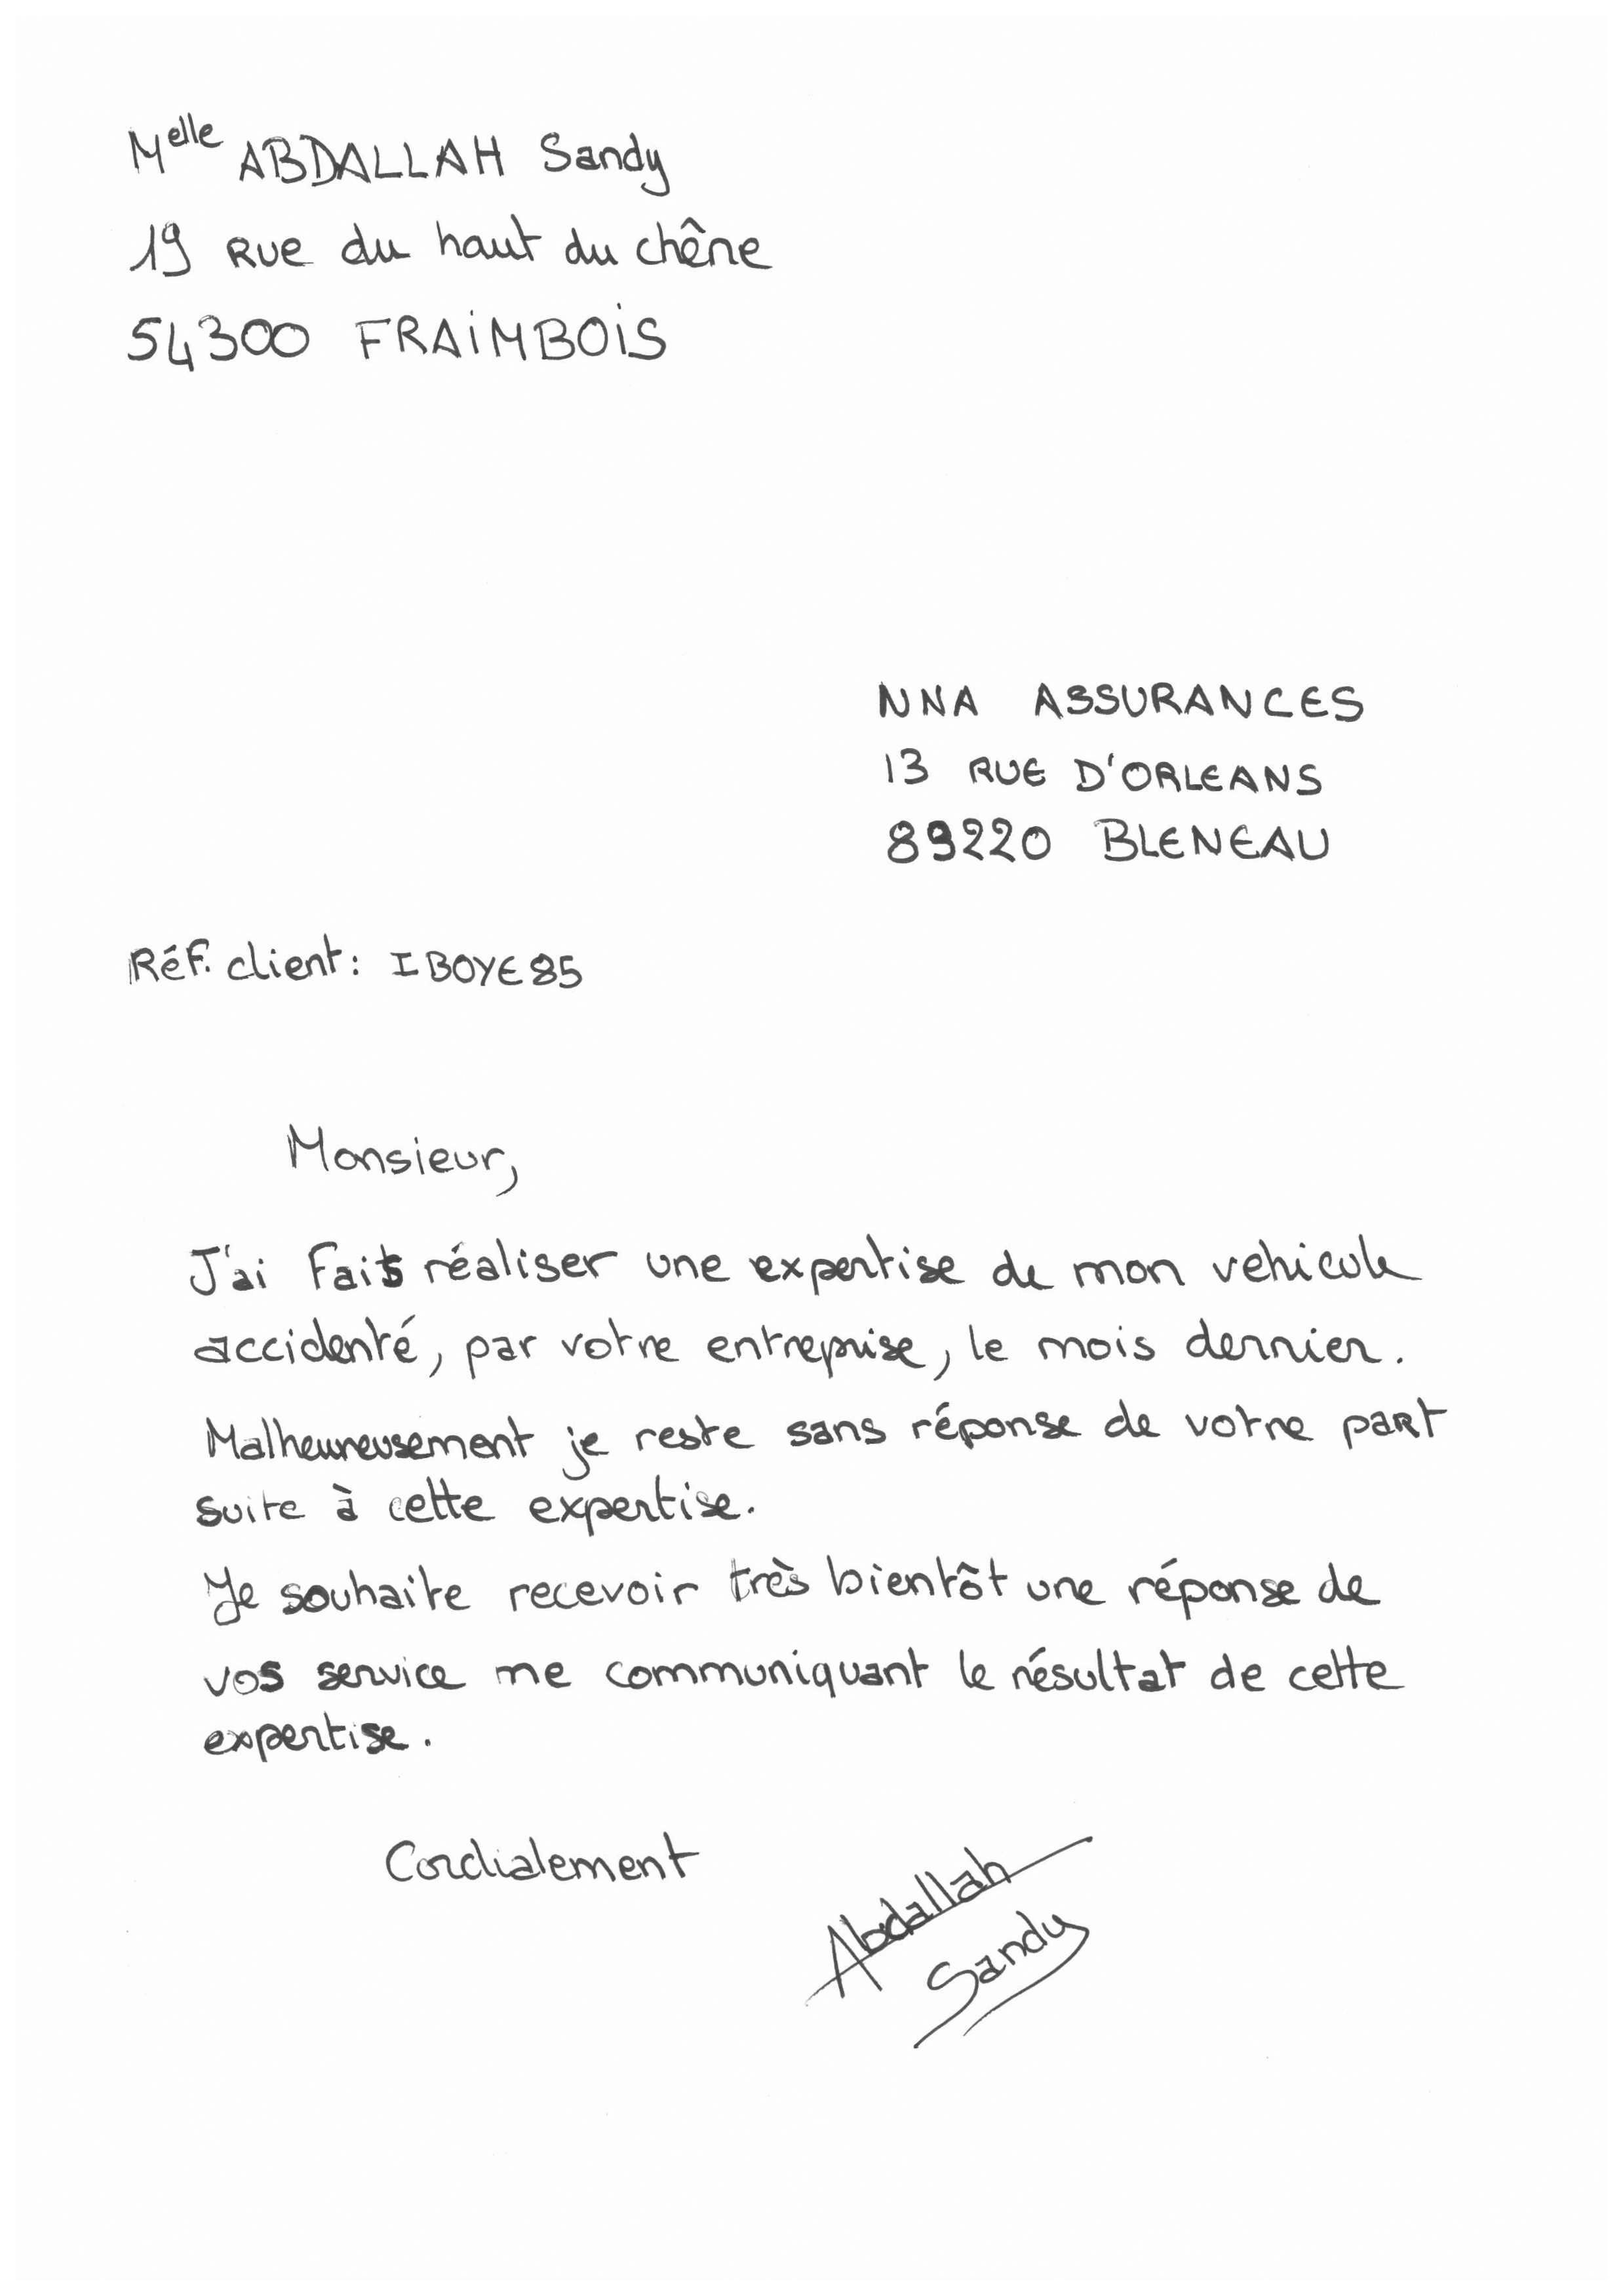 Melle ABDALLAH Sandy
19 Rue du haut du chêne
54300 FRAIMBOIS
NNA ASSURANCES
13 RUE D'ORLEANS
89220 BLENEAU
Réf. client : IBOYE85
Monsieur,
J'ai faits réaliser une expertise de mon vehicule
accidenté, par votre entreprise, le mois dernier.
Malheureusement je reste sans réponse de votre part
suite à cette expertise.
Je souhaite recevoir très bientôt une réponse de
vos service me communiquant le résultat de cette
expertise.
Cordialement
Abdallah
Sandy